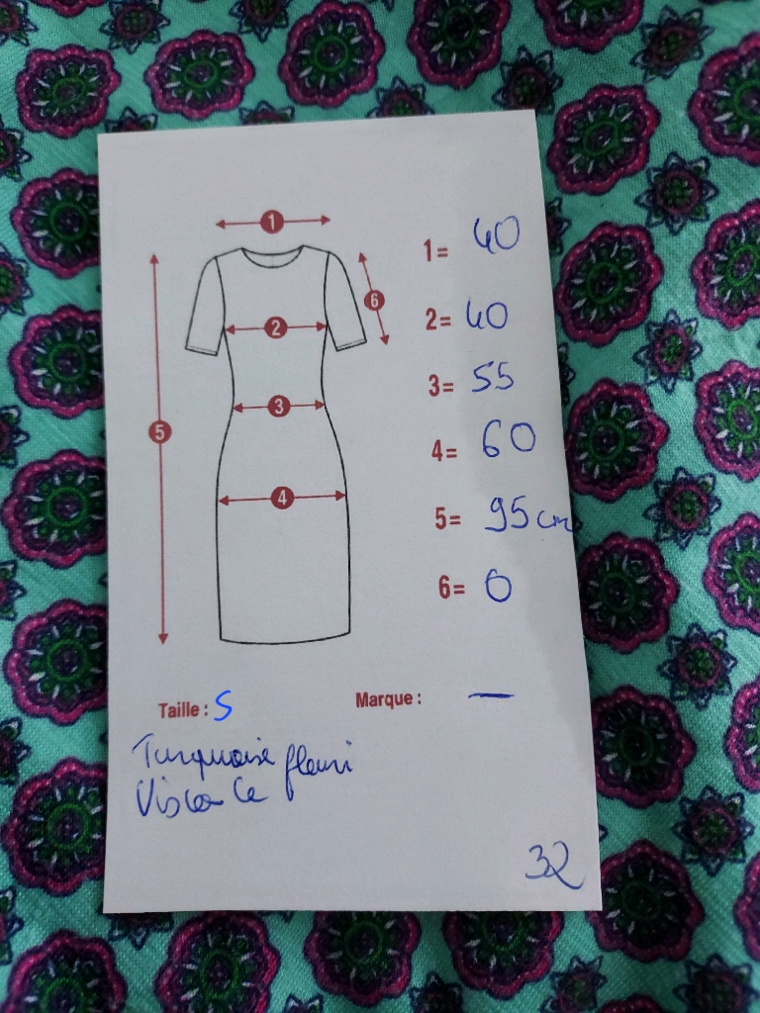 1
1= 40
6
2
2= 40
3
3= 55
5
4= 60
4
5= 95 cm
6= 0
Taille : S
Marque : —
Turquoise fleuri
Viscose
32